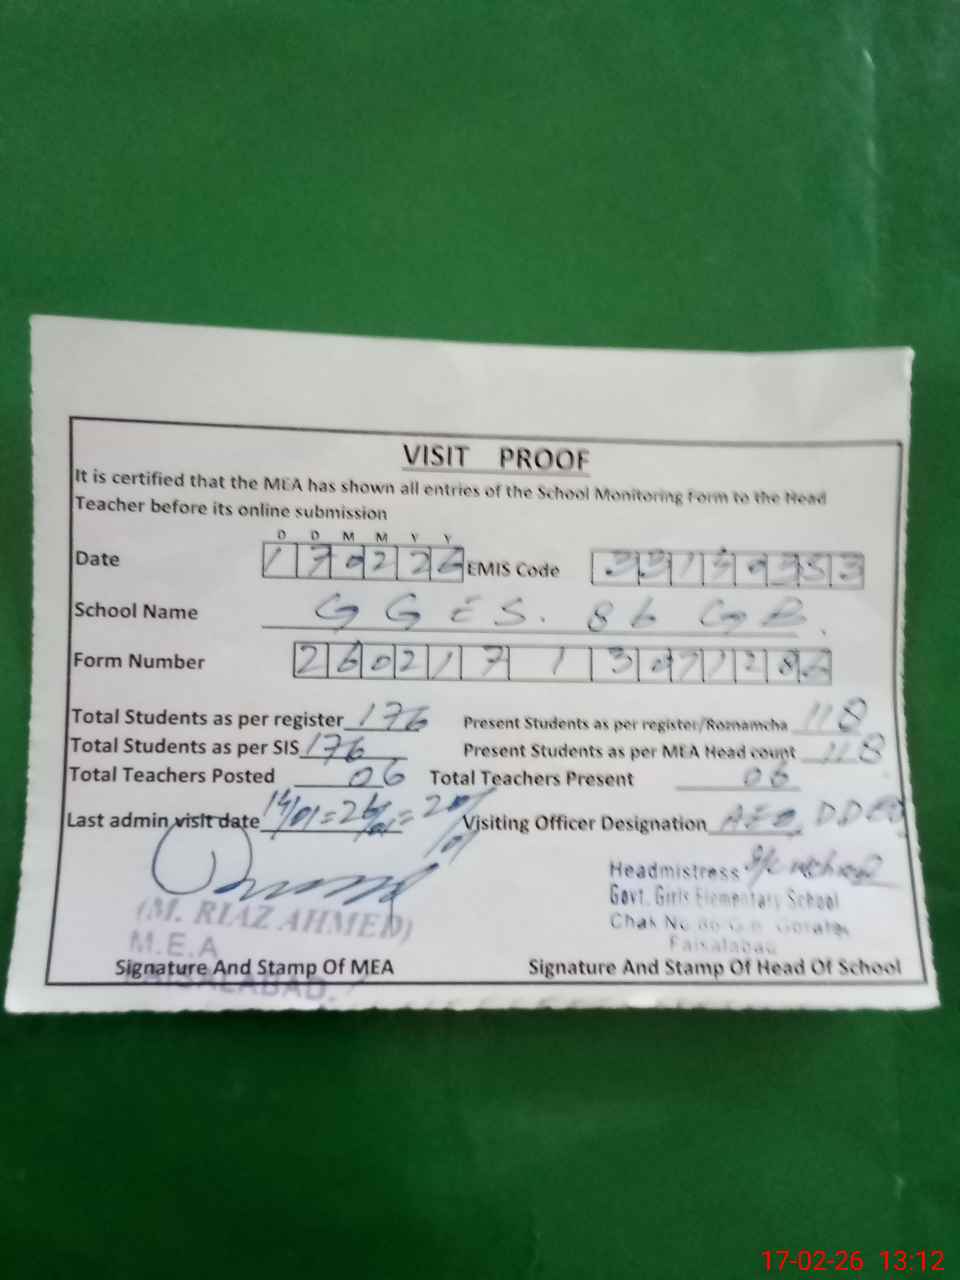 VISIT PROOF
It is certified that the MEA has shown all entries of the School Monitoring Form to the Head
Teacher before its online submission
D D M M Y Y
Date 170226 EMIS Code
School Name GGES. 86 GB
Form Number
Total Students as per register 176 Present Students as per register/Roznamcha 118
Total Students as per SIS 176 Present Students as per MEA Head count 118
Total Teachers Posted 06 Total Teachers Present 06
Last admin visit date Visiting Officer Designation AEO,
Headmistress
Govt. Girls Elementary School
(M. RIAZ AHMED) Chak No 86 G.B
M.E.A Faisalabad
Signature And Stamp Of MEA Signature And Stamp Of Head Of School
FAISALABAD.
17-02-26 13:12